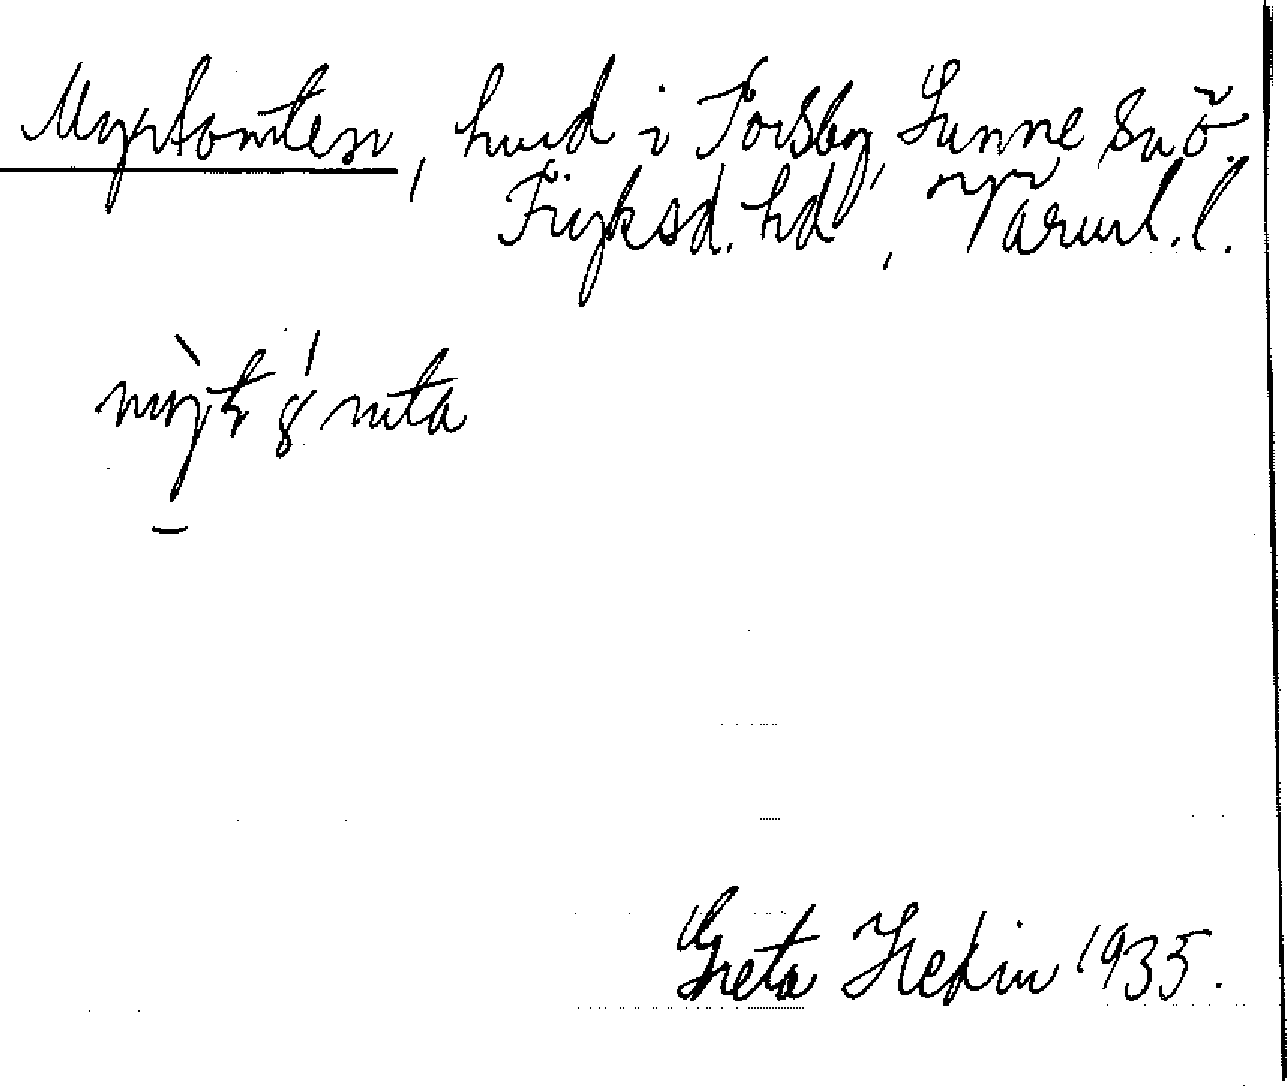 Myrtomten, hmd i Torsby, Sunne sn ö.
Fryksd. hd, Värml. l.
Greta Hedin 1935.